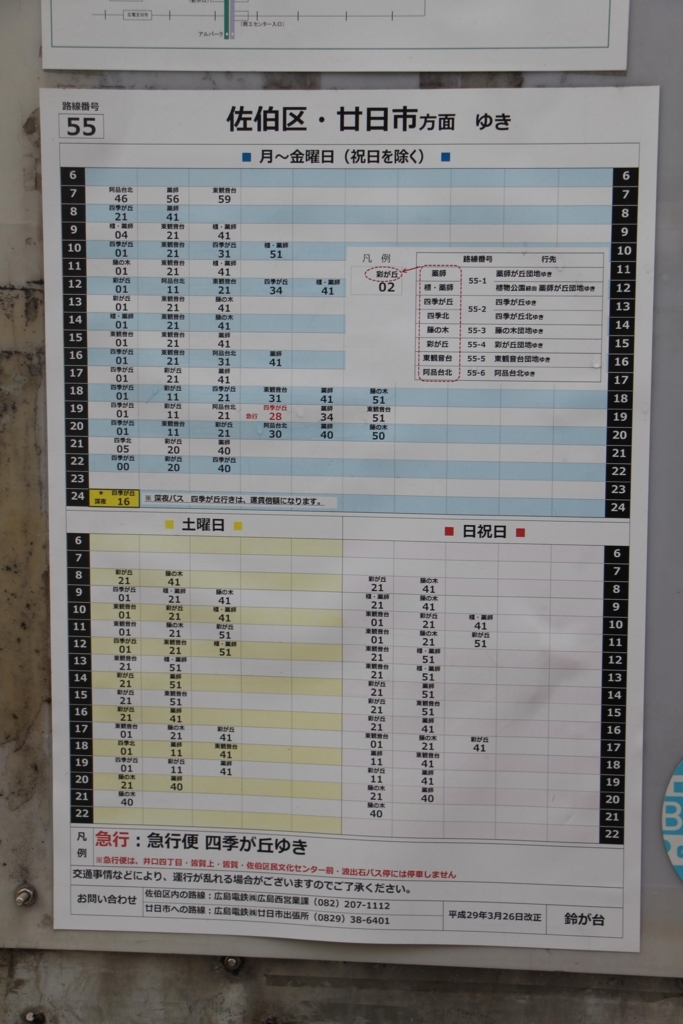 広電五日市
アルパーク
(商工センター入口)
路線番号
55
佐伯区・廿日市方面 ゆき
■ 月～金曜日（祝日を除く） ■
6 6
7 阿品台北 46 薬師 56 東観音台 59 7
8 四季が丘 21 薬師 41 8
9 植・薬師 04 東観音台 21 植・薬師 41 9
10 四季が丘 01 東観音台 21 四季が丘 31 植・薬師 51 10
11 藤の木 01 東観音台 21 植・薬師 41 11
12 彩が丘 01 阿品台北 11 東観音台 21 四季が丘 34 植・薬師 41 12
13 彩が丘 01 東観音台 21 藤の木 41 13
14 植・薬師 01 東観音台 21 藤の木 41 14
15 東観音台 01 彩が丘 21 薬師 41 15
16 四季が丘 01 東観音台 21 阿品台北 31 薬師 41 16
17 四季が丘 01 彩が丘 21 薬師 41 17
18 四季が丘 01 彩が丘 11 四季が丘 21 東観音台 31 薬師 41 藤の木 51 18
19 四季が丘 01 彩が丘 11 阿品台北 21 急行 四季が丘 28 薬師 34 東観音台 51 19
20 四季が丘 01 東観音台 11 彩が丘 21 阿品台北 30 薬師 40 藤の木 50 20
21 四季北 05 彩が丘 20 薬師 40 21
22 四季が丘 00 彩が丘 20 四季が丘 40 22
23 23
24 ★ 深夜 四季が丘 16 ※ 深夜バス 四季が丘行きは、運賃倍額になります。 24
凡 例
彩が丘
02
路線番号 行先
薬師 55-1 薬師が丘団地ゆき
植・薬師 植物公園経由 薬師が丘団地ゆき
四季が丘 55-2 四季が丘ゆき
四季北 四季が丘北ゆき
藤の木 55-3 藤の木団地ゆき
彩が丘 55-4 彩が丘団地ゆき
東観音台 55-5 東観音台団地ゆき
阿品台北 55-6 阿品台北ゆき
■ 土曜日 ■
6
7
8 彩が丘 21 藤の木 41
9 四季が丘 01 植・薬師 21 藤の木 41
10 東観音台 01 彩が丘 21 植・薬師 41
11 東観音台 01 藤の木 21 彩が丘 51
12 四季が丘 01 東観音台 21 植・薬師 51
13 東観音台 21 植・薬師 51
14 彩が丘 21 薬師 51
15 彩が丘 21 東観音台 51
16 彩が丘 21 薬師 41
17 東観音台 01 藤の木 21 彩が丘 41
18 四季北 01 薬師 11 東観音台 41
19 四季が丘 01 彩が丘 11 薬師 41
20 藤の木 21 薬師 40
21 藤の木 40
22
■ 日祝日 ■
6
7
8 彩が丘 21 藤の木 41
9 植・薬師 21 藤の木 41
10 東観音台 01 彩が丘 21 植・薬師 41
11 東観音台 01 藤の木 21 彩が丘 51
12 東観音台 21 植・薬師 51
13 東観音台 21 植・薬師 51
14 彩が丘 21 薬師 51
15 彩が丘 21 東観音台 51
16 彩が丘 21 薬師 41
17 東観音台 01 藤の木 21 彩が丘 41
18 薬師 11 東観音台 41
19 彩が丘 11 薬師 41
20 藤の木 21 薬師 40
21 藤の木 40
22
凡例 急行：急行便 四季が丘ゆき
※急行便は、井口四丁目・皆賀上・皆賀・佐伯区民文化センター前・波出石バス停には停車しません
交通事情などにより、運行が乱れる場合がございますのでご了承ください。
お問い合わせ
佐伯区内の路線：広島電鉄㈱広島西営業課（082）207-1112
廿日市への路線：広島電鉄㈱廿日市出張所（0829）38-6401
平成29年3月26日改正
鈴が台
B